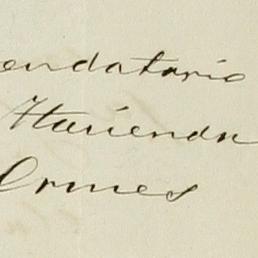 endatario
Hacienda
Ormes